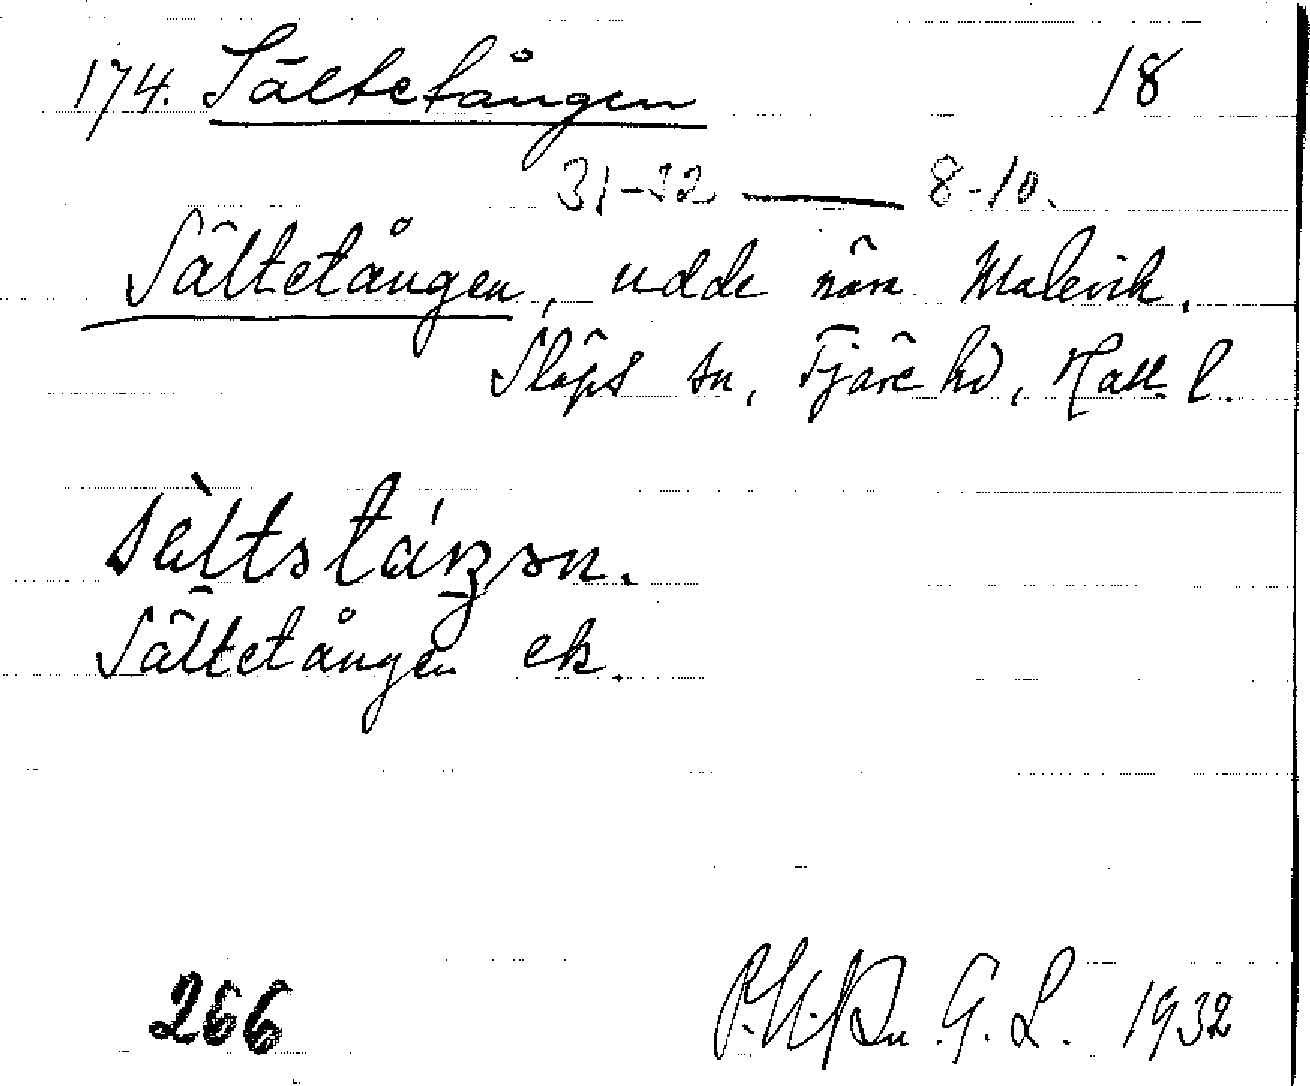 174. Sältetången 18
31-32 — 8-10.
Sältetången, udde nära Malevik.
Släps sn, Fjäre hd, Hall. l.
Sältetången ek.
266 G. L. 1932